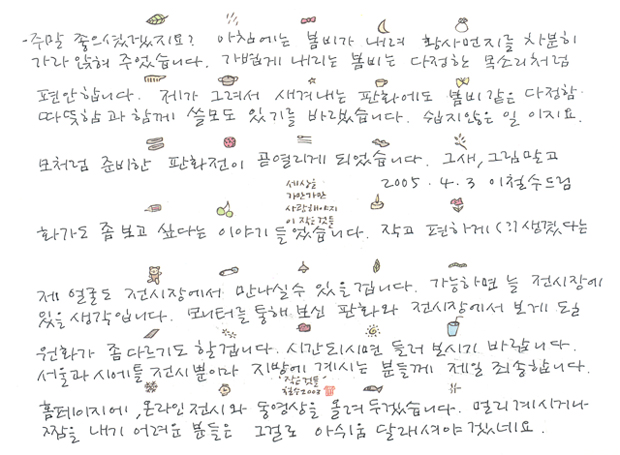 -주말 좋으셨겠지요? 아침에는 봄비가 내려 황사먼지를 차분히
가라 앉혀 주었습니다. 가볍게 내리는 봄비는 다정한 목소리처럼
편안합니다. 제가 그려서 새겨내는 판화에도 봄비같은 다정함
따뜻함과 함께 쓸모도 있기를 바랬습니다. 쉽지않은 일 이지요.
모처럼 준비한 판화전이 곧열리게 되었습니다. 그새, 그림말고
2005 · 4 · 3 이철수드림
세상을
가만가만
사랑해야지
이 작은것들
화가도 좀 보고 싶다는 이야기 들었습니다. 작고 편하게(?) 생겼다는
제 얼굴도 전시장에서 만나실수 있을겁니다. 가능하면 늘 전시장에
있을 생각입니다. 모니터를 통해 보신 판화와 전시장에서 보게 되실
원화가 좀 다르기도 할겁니다. 시간되시면 들러 보시기 바랍니다.
서울과 시애틀 전시뿐이라 지방에 계시는 분들께 제일 죄송합니다.
작은것들
철수2003
홈페이지에, 온라인전시와 동영상을 올려두겠습니다. 멀리계시거나
짬을 내기 어려운 분들은 그걸로 아쉬움 달래셔야겠네요.